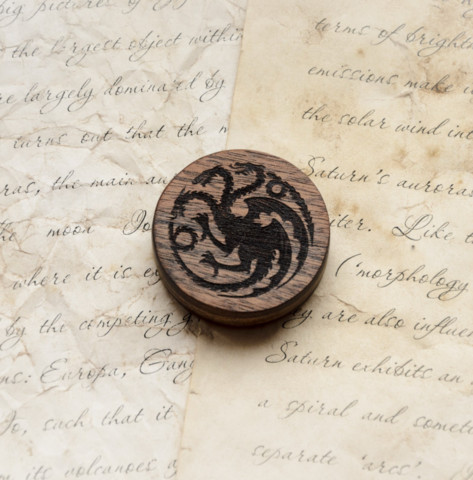 big pictures of
the largest object within
are largely dominated by
turns out that the m
the main au
the moon Io
where it is ex
by the competing g
Europa, Gany
Io, such that it
its volcanoes
terms of bright
emissions make i
the solar wind int
Saturn's aurora
iter. Like t
('morphology
are also influen
Saturn exhibits an
a spiral and somet
separate 'arcs'.